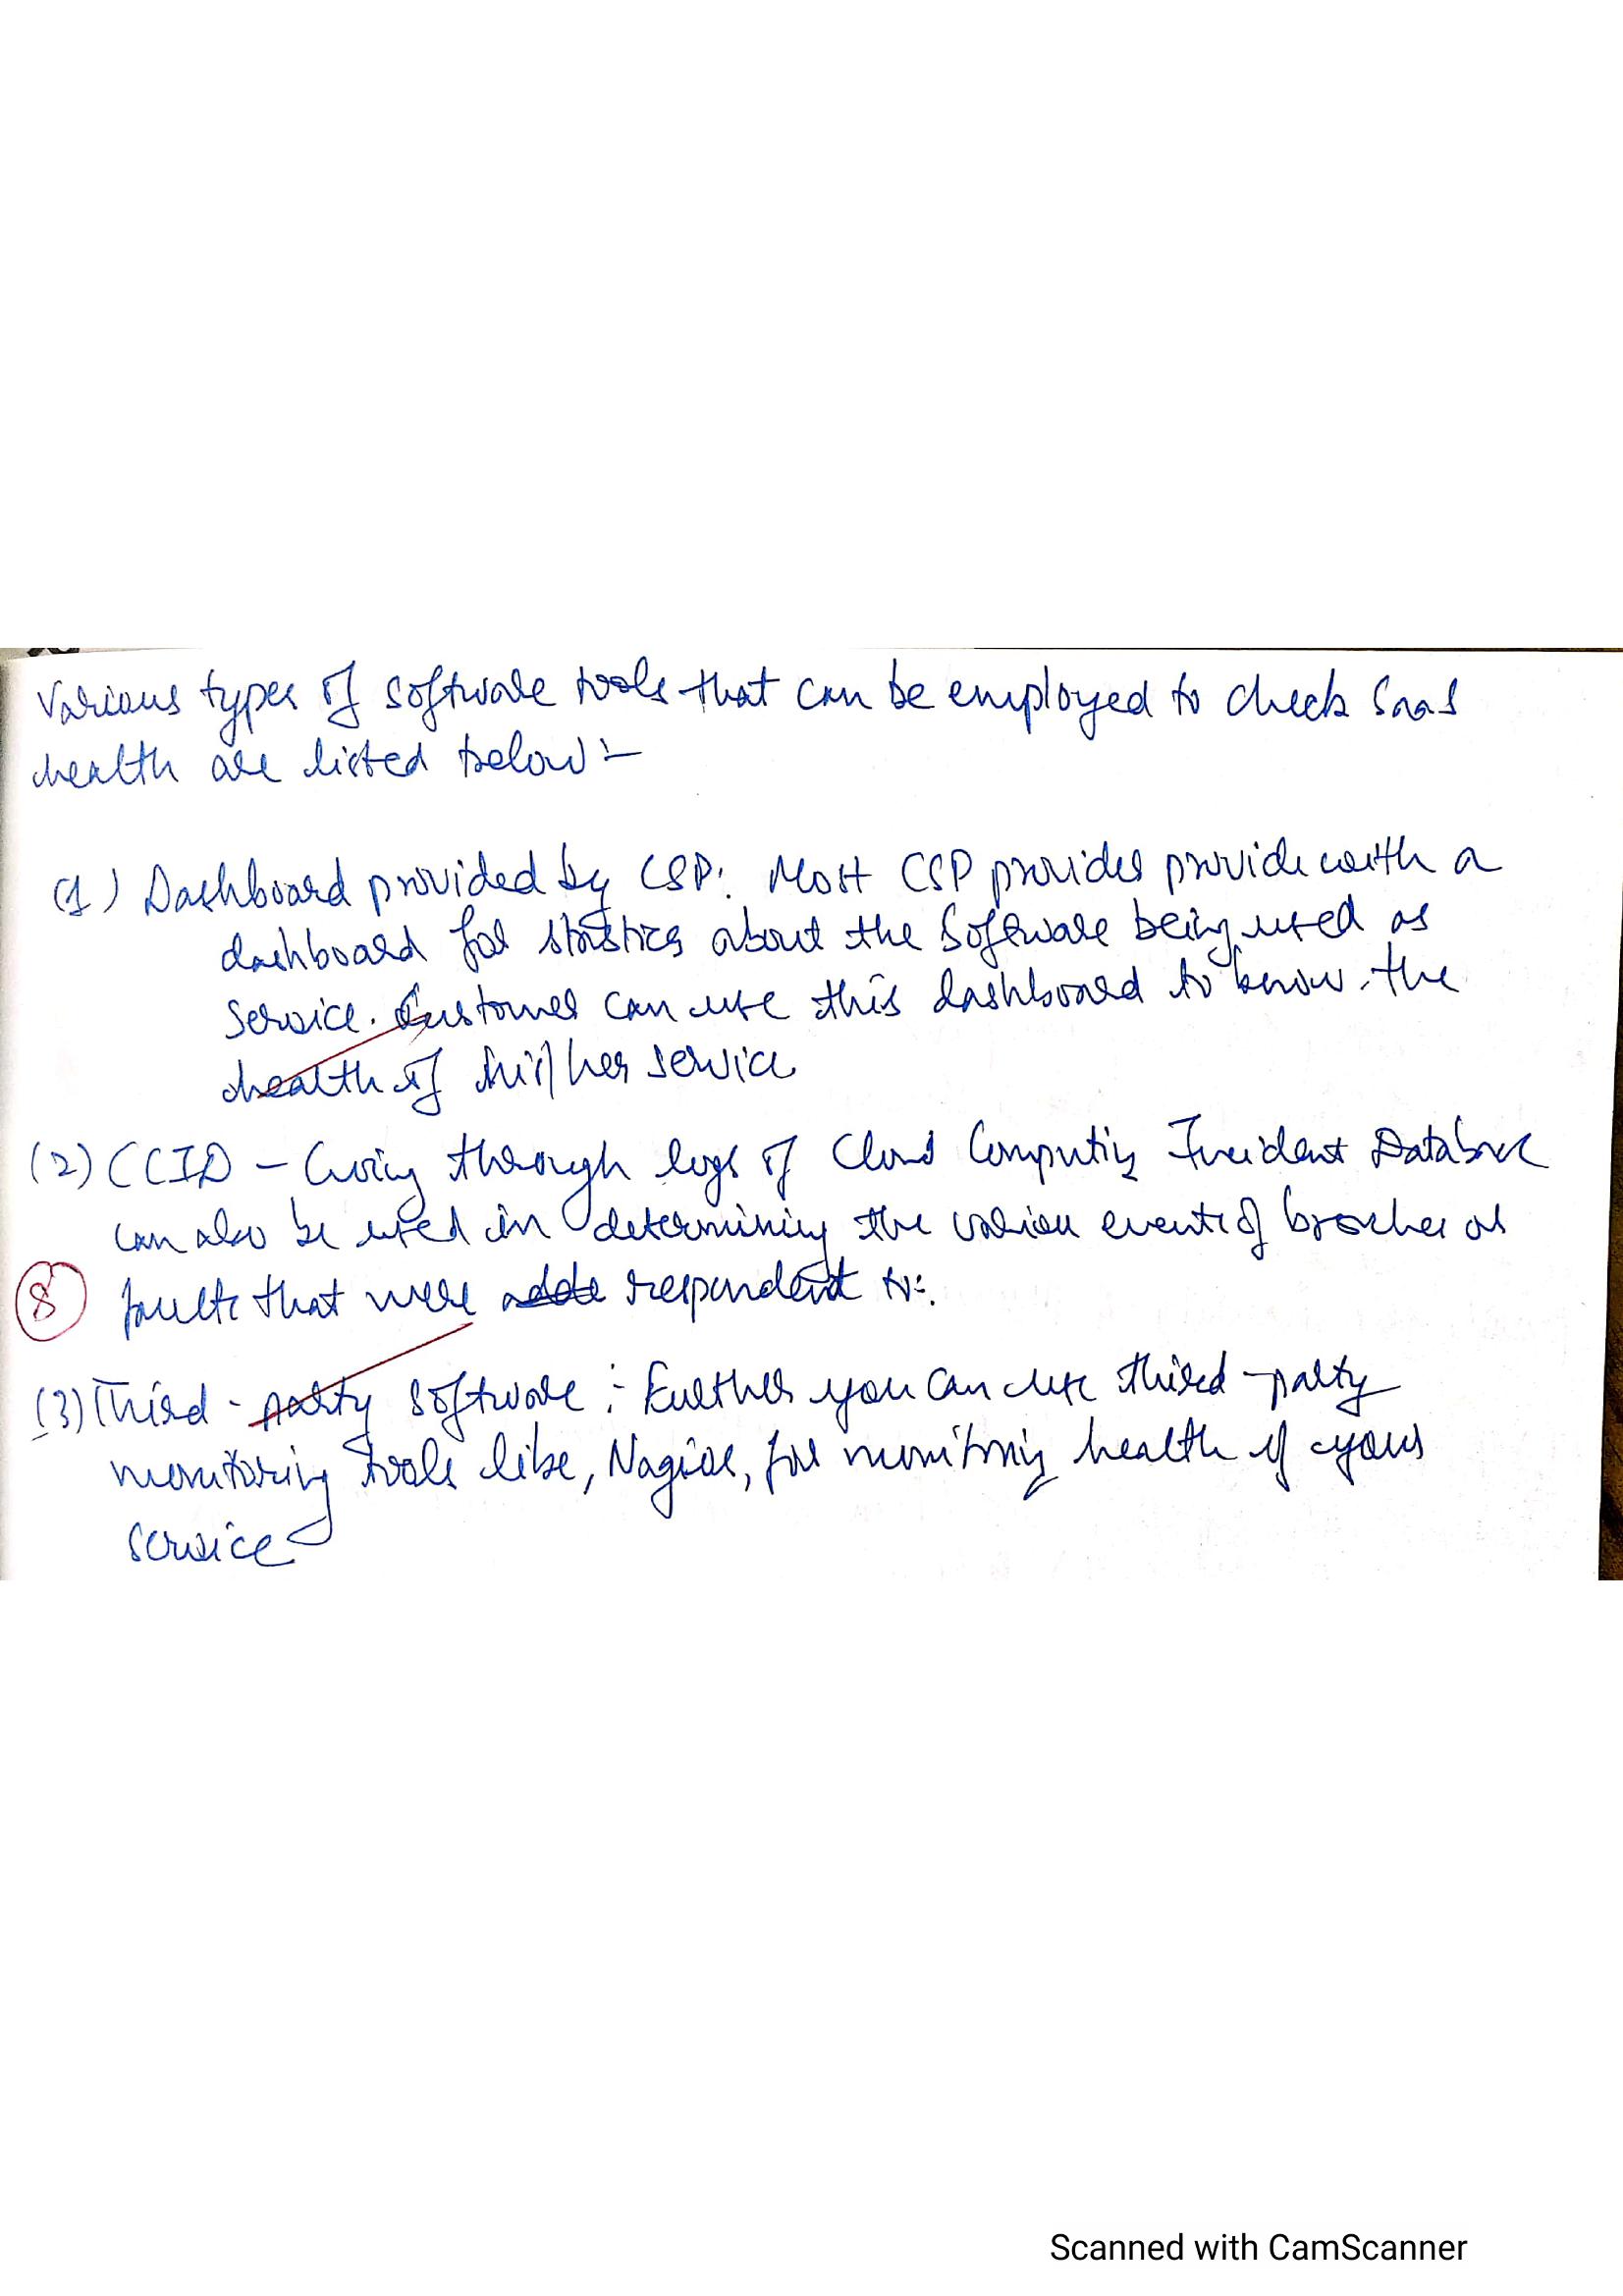 Various types of software tools that can be employed to check SaaS
health are listed below :-
(1) Dashboard provided by CSP: Most CSP provides provide with a
dashboard for statstics about the Software being used as
service. Customer can use this dashboard to know the
health of his/her service
(2) CCID - Going through logs of Cloud Computing Incident Database
can also be used in determining the various events of breaches or
8 faults that were respondent to.
(3) Third-party software :- Further you can use third-party
monitoring tools like, Nagios, for monitoring health of your
service
Scanned with CamScanner